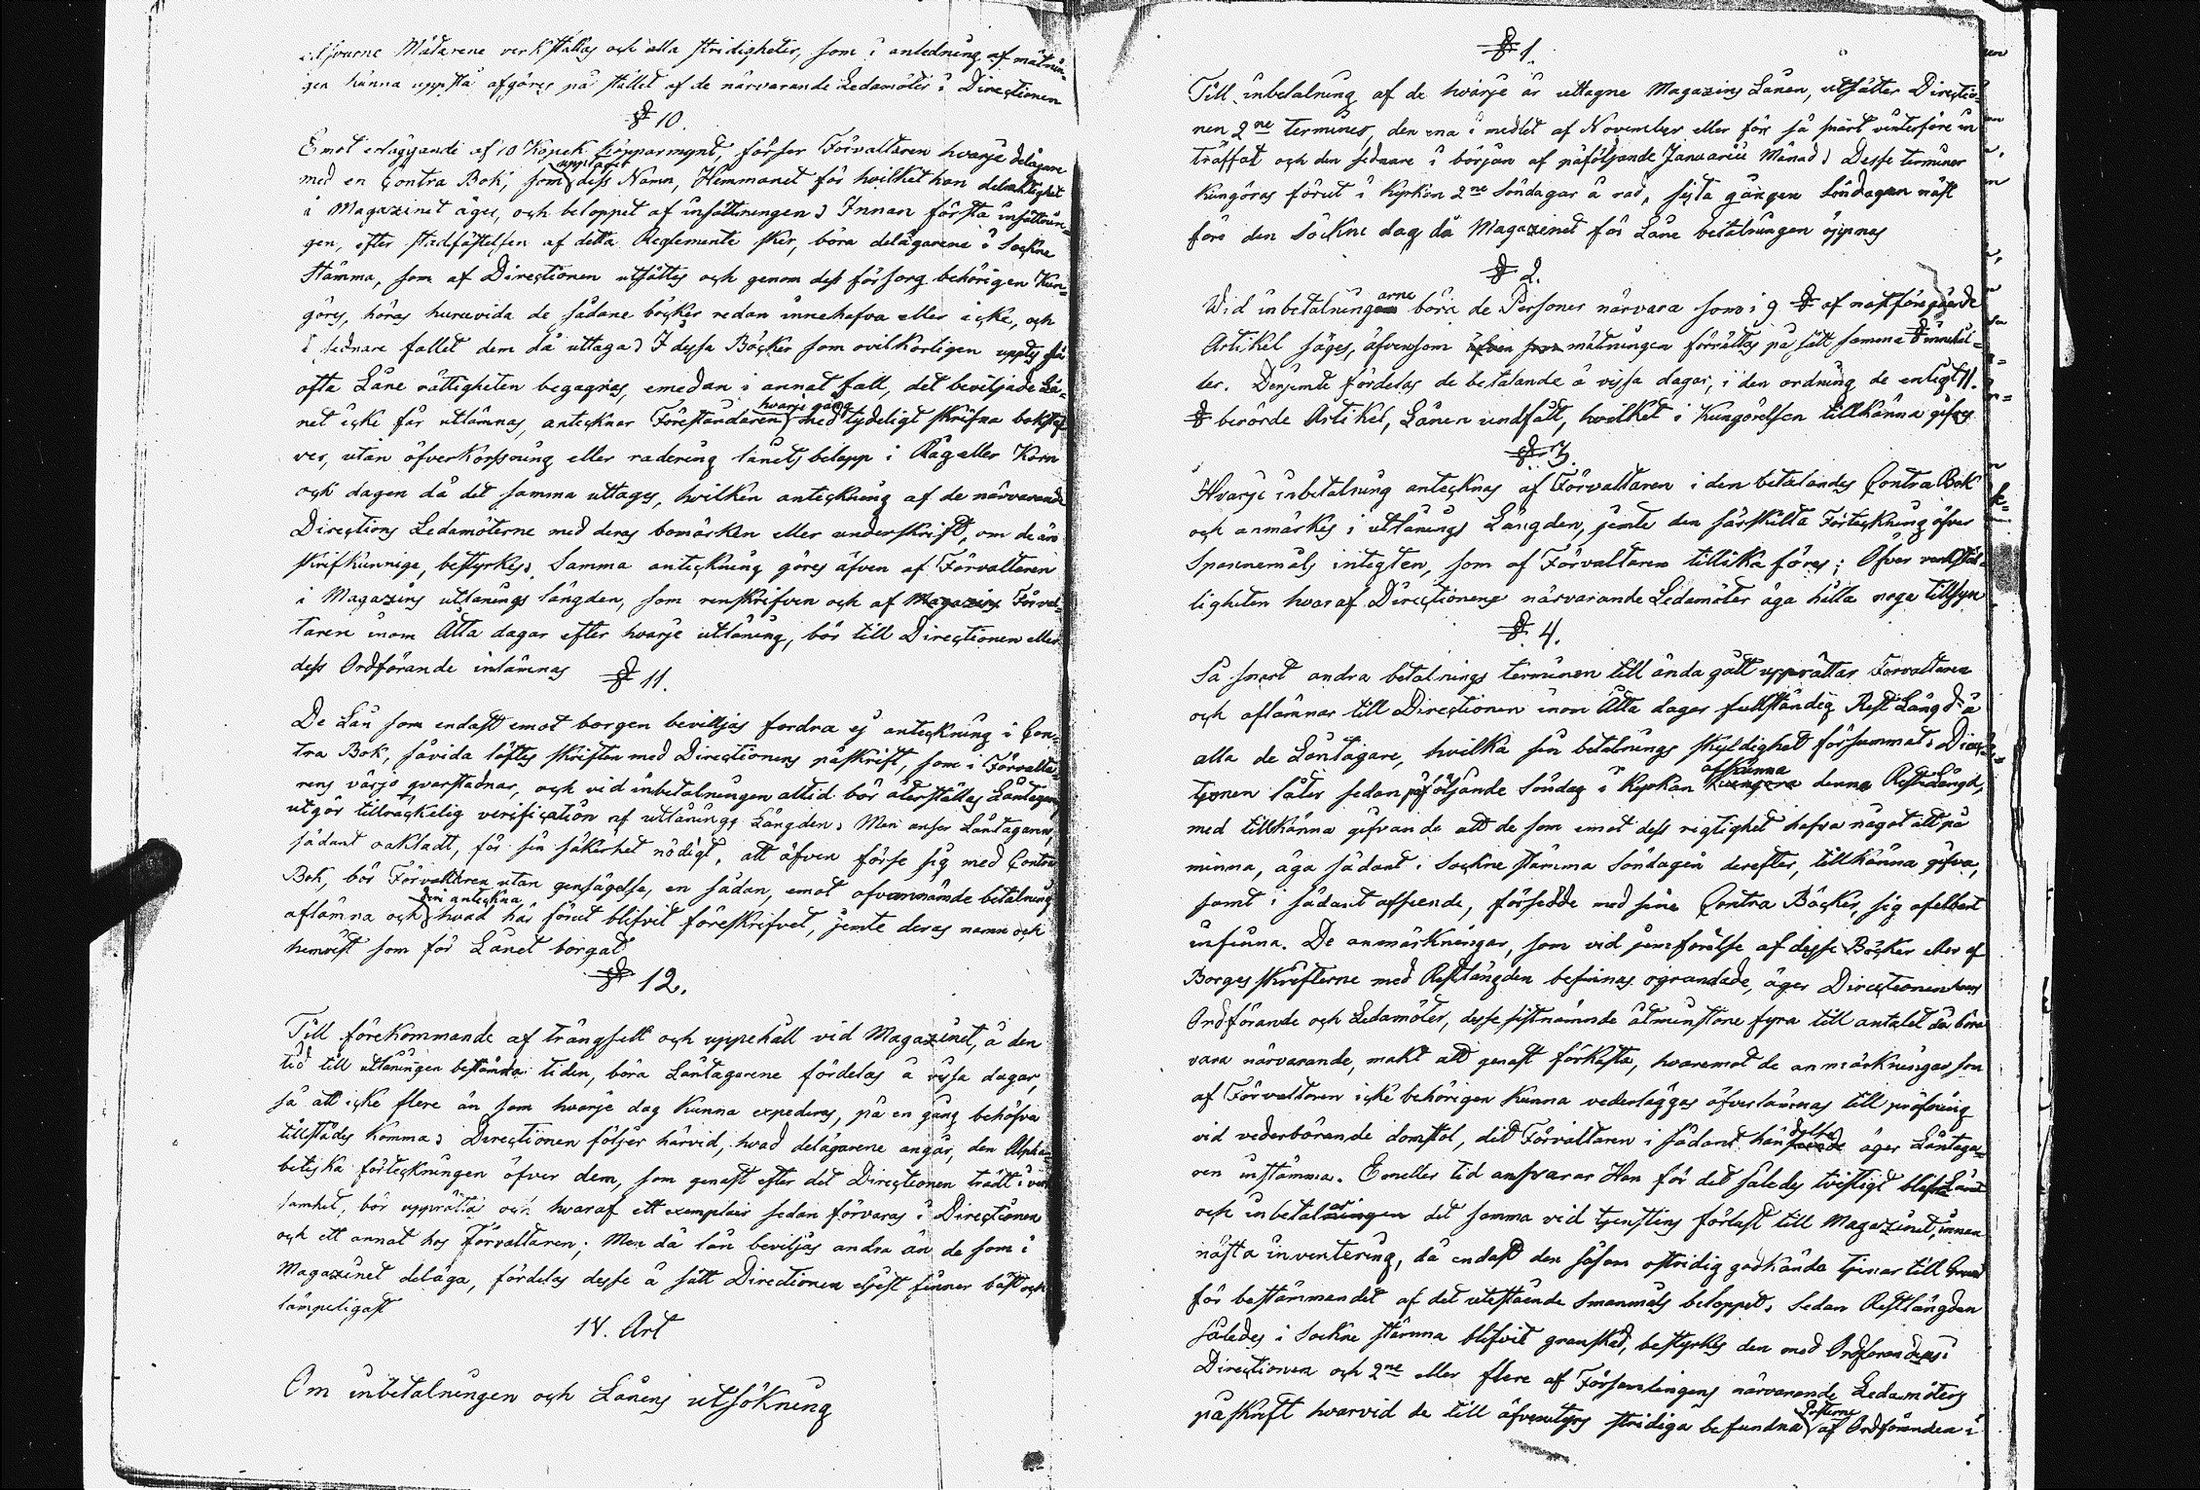 svurne Mätarene verkställas och alla stridigheter, som i anledning af mätnin-
gen kunna uppstå afgöres på stället af de närvarande Ledamöter i Directionen
§ 10.
Emot erläggande af 10 Kopek kopparmynt, förser Förvaltaren hvarje delägare
med en Contra Bok, som upptager dess Namn, Hemmanet för hvilket han delaktighet
i Magazinet äger, och beloppet af insättningen. Innan första insättnin-
gen, efter stadfästelsen af detta Reglemente sker, böra delägarene i Sockne
stämma, som af Directionen utsättes och genom dess försorg behörigen Kun-
göres, höras huruvida de sådane böcker redan innehafva eller icke, och
i sednare fallet dem då uttaga. I dessa Böcker som ovilkorligen uppvis
ofta Låne rättigheten begagnas, emedan i annat fall, det beviljade Lå-
net icke får utlämnas, antecknar Föreståndaren hvarje gång med tydeligt skrifna bokstäf-
ver, utan öfverkorssning eller radering lånets belopp i Råg eller Korn
och dagen då det samma uttages, hvilken anteckning af de närvarande
Directions Ledamöterne med deras bomärken eller underskrift, om de äro
skrifkunnige, bestyrkes. Samma anteckning göres äfven af Förvaltaren
i Magazins utlånings längden, som renskrifven och af Magazins Förval-
taren inom Åtta dagar efter hvarje utlåning, bör till Directionen eller
dess Ordförande inlämnas
§ 11.
De Lån som endast emot borgen beviljas fordra ej anteckning i Con-
tra Bok, såvida löftes skriften med Directionens påskrift, som i Förvalta-
rens värjo qvarstadnar, och vid inbetalningen alltid bör återställas Låntagaren
utgör tillräckelig verification af utlånings Längden. Men anser Låntagaren,
sådant oaktadt, för sin säkerhet nödigt, att äfven förse sig med Contra
Bok, bör Förvaltaren utan gensägelse, en sådan, emot ofvannämde betalning
aflämna och deri anteckna hvad här förut blifvit föreskrifvet, jemte deras namn och
hemvist som för Lånet borgat
§ 12.
Till förekommande af trängsell och uppehåll vid Magazinet, å den
tid till utlåningen bestämda tiden, böra Låntagarene fördelas å vissa dagar,
så att icke flere än som hvarje dag kunna expedieras, på en gång behöfva
tillstädes komma. Directionen följer härvid, hvad delägarene angår, den Alpha-
betiska förteckningen öfver dem, som genast efter det Directionen trädt i verk-
samhet, bör upprättas och hvaraf ett exemplair sedan förvaras i Directionen
och ett annat hos Förvaltaren. Men då lån beviljas andra än de som i
Magazinet deläga, fördelas desse å sätt Directionen eljest finner bäst och
lämpeligast
IV. Art
Om inbetalningen och Lånens utsökning
§ 1.
Till inbetalning af de hvarje år uttagne Magazins Lånen, utsätter Directio-
nen 2ne terminer, den ena i medlet af November eller för så snart vinterföre in
träffat och den sednare i början af påföljande Januarii Månad. Desse terminer
kungöras förut i Kyrkan 2ne Söndagar å rad, sista gången Söndagen näst
före den Sökne dag då Magazinet för Låne betalningen öppnas
§ 2.
Wid inbetalningarne böra de Personer närvara som i 9 § af nästföregående
Artikel säges, äfvensom mätningen förrättas på sätt samma § innehål-
ler. Dersemte fördelas de betalande å vissa dagar, i den ordning de enligt 11.
§ berörde Artikel, Lånen undfått, hvilket i Kungörelsen tillkänna gifves
§ 3.
Hvarje inbetalning antecknas af Förvaltaren i den betalandes Contra Bok
och anmärkes i utlånings Längden, jemte den särskilta Förteckning öfver
Spannemåls intägten, som af Förvaltaren tillika föres; Öfver verkstäl-
ligheten hvaraf Directionens närvarande Ledamöter äga hålla noga tillsyn
§ 4.
Så snart andra betalnings terminen till ända gått upprättar Förvaltaren
och aflämnar till Directionen inom Åtta dagar fullständig Rest Längd å
alla de Låntagare, hvilka sin betalnings skyldighet försummat. Direc-
tionen låter sedan påföljande Söndag i Kyrkan afkunna denna Rest Längd,
med tillkänna gifvande att de som emot dess rigtighet hafva något att på
minna, äga sådant i Sockne stämma Söndagen derefter, tillkänna gifva,
samt i sådant afseende, försedde med sine Contra Böcker, sig ofelbart
infinna. De anmärkningar, som vid jemförelse af desse Böcker eller af
Borges skrifterne med Restlängden befinnas ogrundade, äger Directionens
Ordförande och Ledamöter, desse sistnämnde åtminstone fyra till antalet då böra
vara närvarande, makt att genast förkasta, hvaremot de anmärkningar som
af Förvaltaren icke behörigen kunna vederläggas öfverlämnas till pröfning
vid vederbörande domstol, dit Förvaltaren i sådant hänseende äger Låntaga-
ren instämma. Emeller tid ansvarar Han för det således tvistigt blefne Lånet
och inbetalar det samma vid tjenstens förlust till Magazinet, innan
nästa inventering, då endast den såsom ostridig godkände tjenar till Grund
för bestämmandet af det utestående Spanmåls beloppet. Sedan Restlängden
således i Sockne stämma blifvit granskad, bestyrkes den med Ordförandens i
Directionen och 2ne eller flere af Församlingens närvarande Ledamöters
påskrift hvarvid de till äfventyrs stridiga befundna Posterne af Ordföranden i